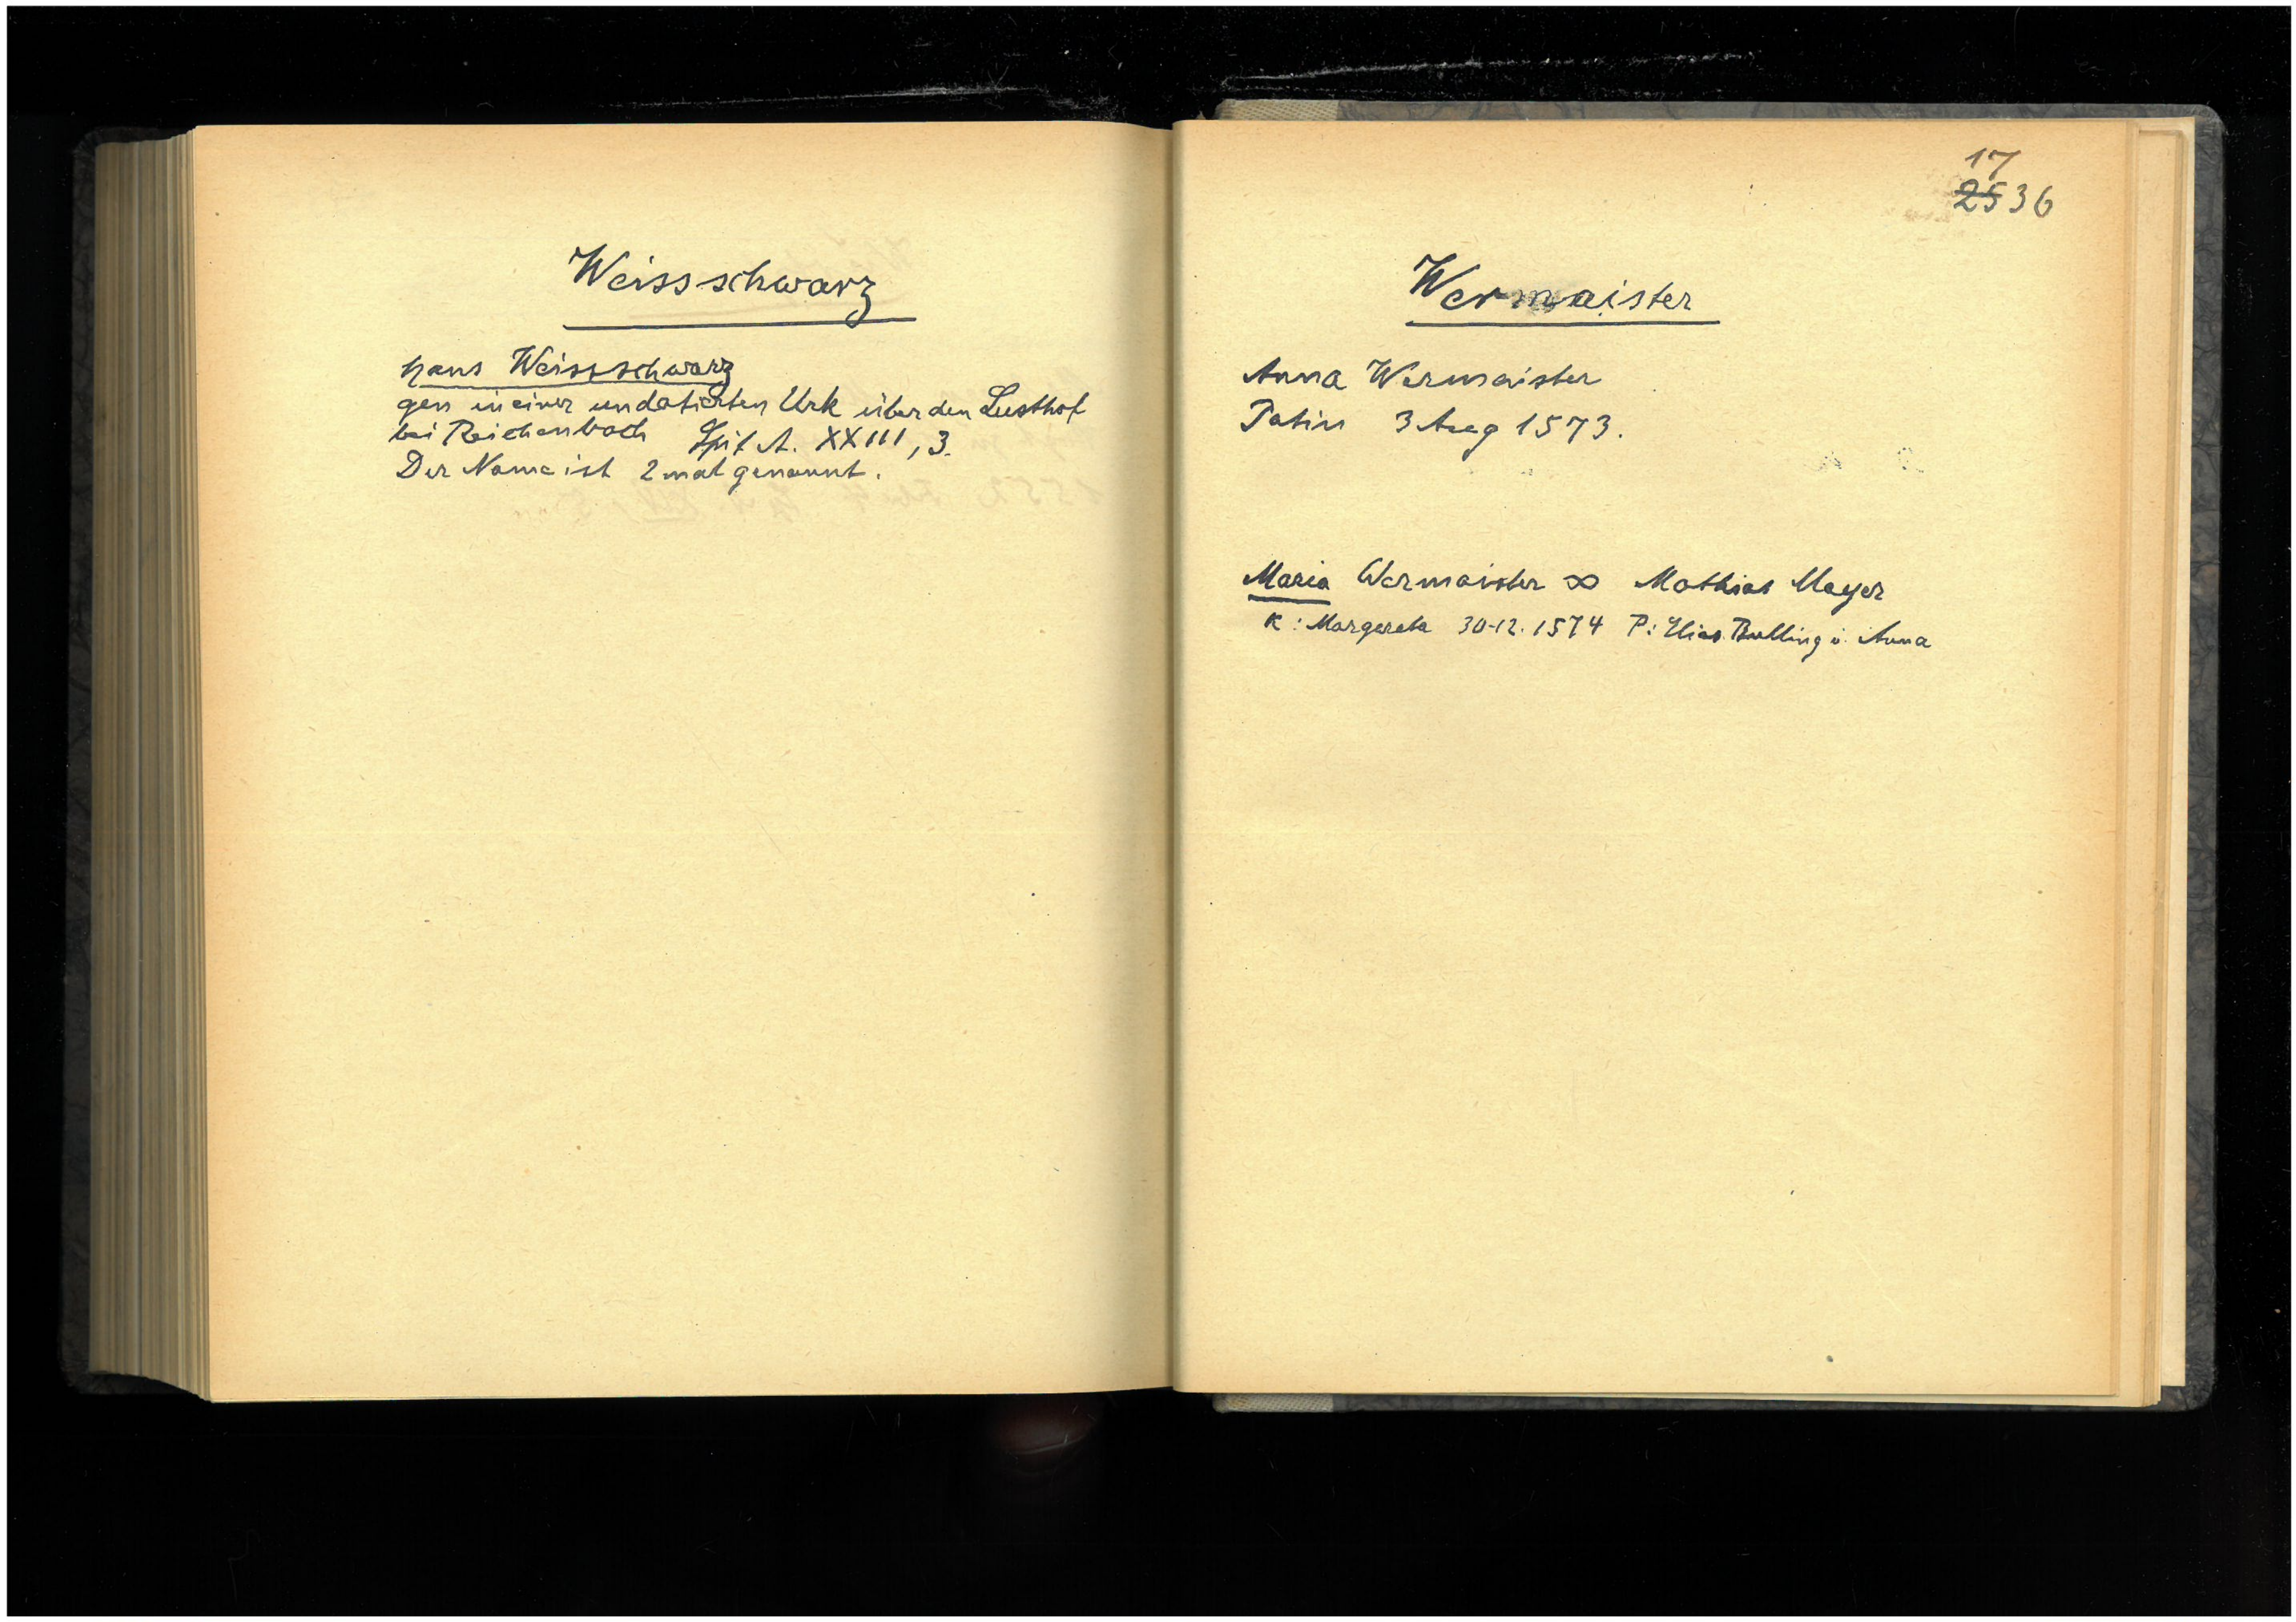 Weissschwarz
Hans Weissschwarz
gen in einer undatierten Urk über den Lusthof
bei Reichenbach Spit A. XXIII, 3.
Der Name ist 2 mal genannt.
17
2536
Wermaister
Anna Wermaister
Patin 3 Aug 1573.
Maria Wermaister ∞ Mathias Mayer
K: Margareta 30.12.1574 P: Elias Bulling u. Anna